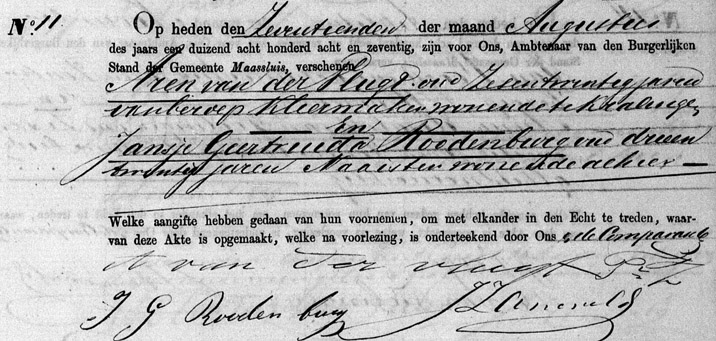 No. 11
Op heden den Zeventienden der maand Augustus
des jaars een duizend acht honderd acht en zeventig, zijn voor Ons, Ambtenaar van den Burgerlijken
Stand der Gemeente Maassluis, verschenen
Aren van der Vlugt oud zesentwintig jaren
van beroep Kleermaker wonende te Kralinge,
En
Jansje Geertruida Roodenburg oud drieen
twintig jaren Naaister wonende alhier
Welke aangifte hebben gedaan van hun voornemen, om met elkander in den Echt te treden, waar-
van deze Akte is opgemaakt, welke na voorlezing, is onderteekend door Ons & de Comparanten
A van der vlugt
J G Roodenburg